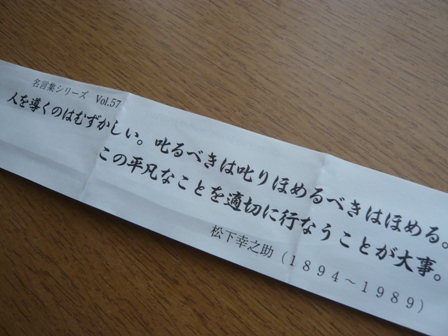 名言集シリーズ Vol.57
人を導くのはむずかしい。叱るべきは叱りほめるべきはほめる。
この平凡なことを適切に行なうことが大事。
松下幸之助(1894～1989)